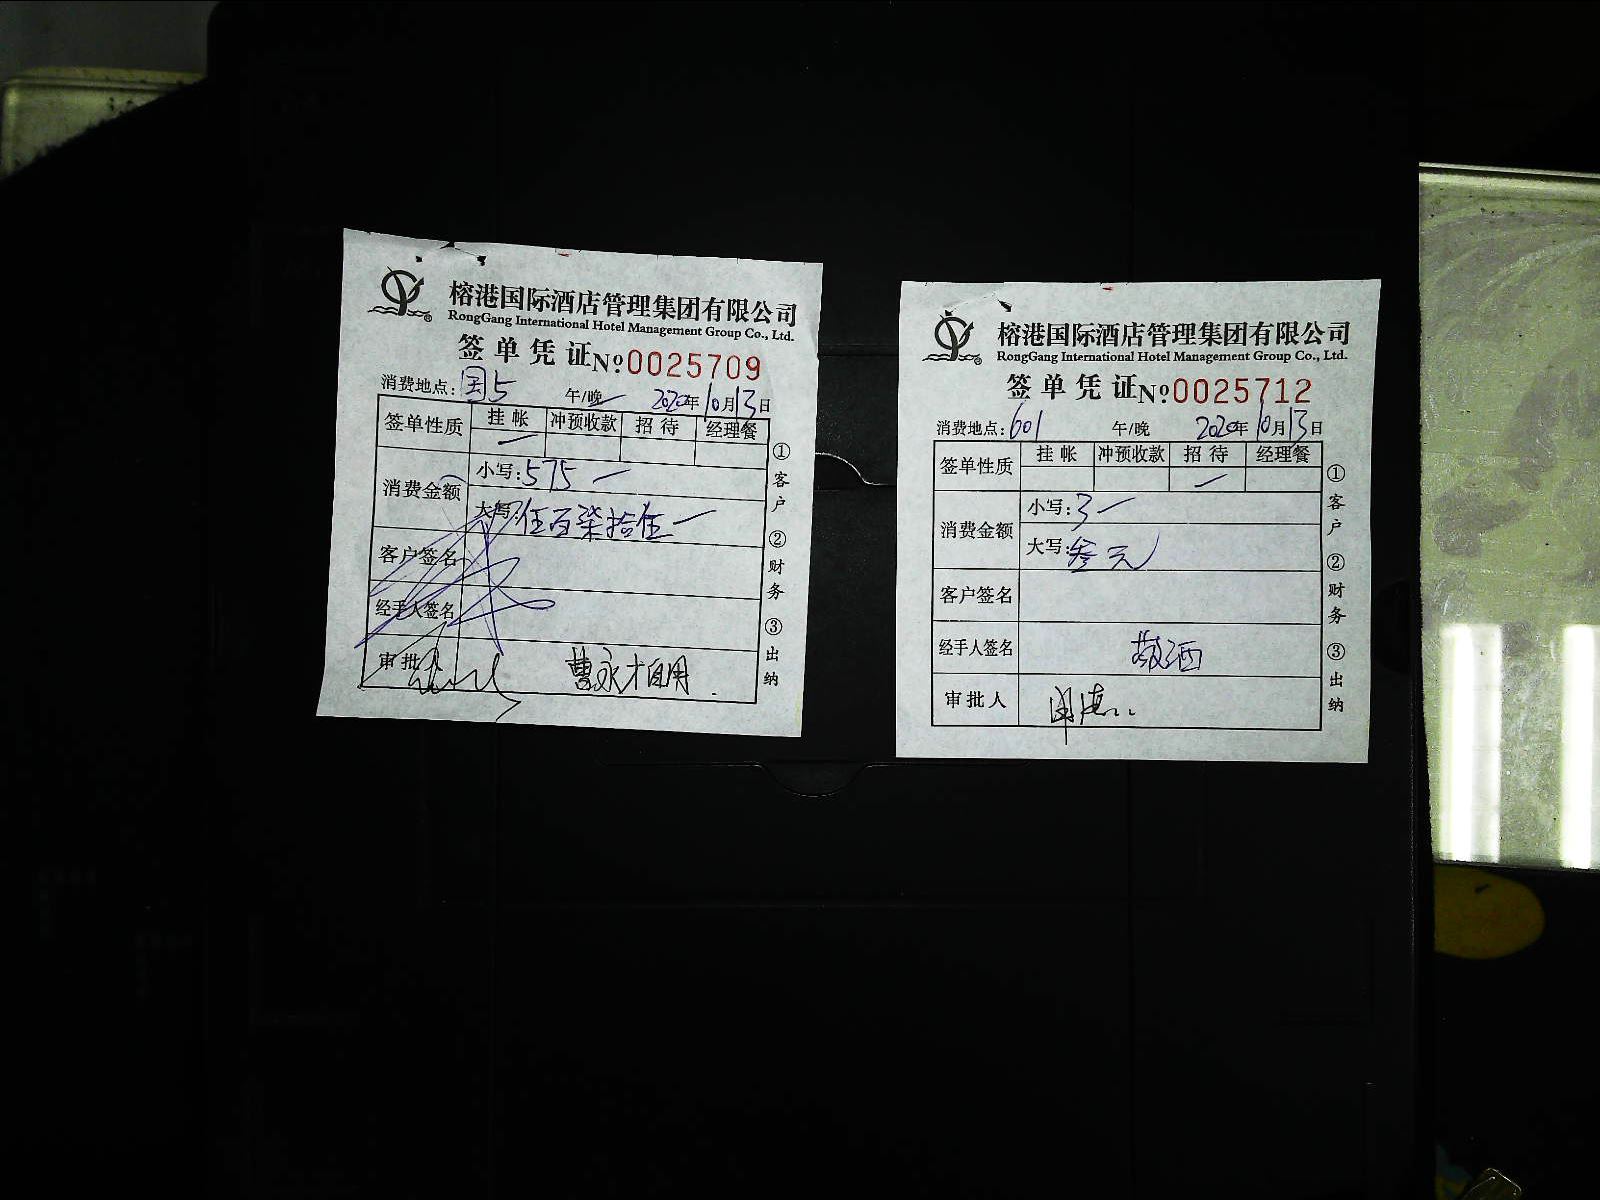 榕港国际酒店管理集团有限公司
RongGang International Hotel Management Group Co., Ltd.
签单凭证 №0025709
消费地点: 国5 午/晚 2020年10月13日
签单性质 挂帐 冲预收款 招待 经理餐
消费金额 小写: 575
大写: 伍百柒拾伍
客户签名
经手人签名
审批人 曹永才自用
①客户 ②财务 ③出纳
榕港国际酒店管理集团有限公司
RongGang International Hotel Management Group Co., Ltd.
签单凭证 №0025712
消费地点: 601 午/晚 2020年10月13日
签单性质 挂帐 冲预收款 招待 经理餐
消费金额 小写: 3
大写: 叁元
客户签名
经手人签名 敬酒
审批人
①客户 ②财务 ③出纳